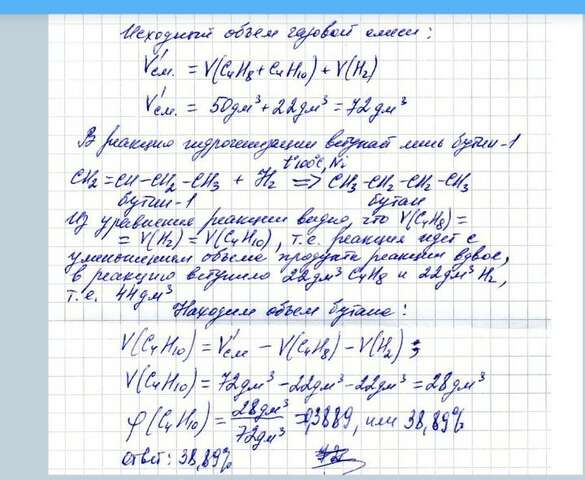 Исходный объем газовой смеси:
V'см. = V(C4H8 + C4H10) + V(H2)
V'см. = 50дм³ + 22дм³ = 72дм³
В реакцию гидрогенизации вступает лишь бутен-1
t°100°C, Ni
CH2=CH-CH2-CH3 + H2 => CH3-CH2-CH2-CH3
бутен-1 бутан
Из уравнения реакции видно, что V(C4H8) =
= V(H2) = V(C4H10), т.е. реакция идет с
уменьшением объема продукта реакции вдвое,
в реакцию вступило 22дм³ C4H8 и 22дм³ H2,
т.е. 44дм³
Находим объем бутана:
V(C4H10) = V'см - V(C4H8) - V(H2);
V(C4H10) = 72дм³ - 22дм³ - 22дм³ = 28дм³
φ(C4H10) = 28дм³/72дм³ = 0,3889, или 38,89%
Ответ: 38,89%